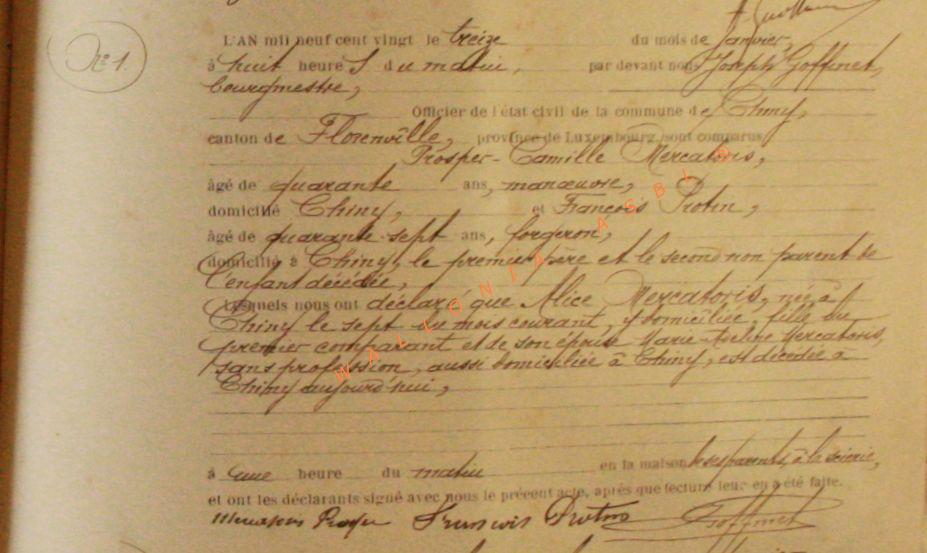 N° 1.
L'AN mil neuf cent vingt le treize du mois de Janvier,
à huit heures du matin, par devant nous Joseph Goffinet,
bourgmestre,
Officier de l'état civil de la commune de Chiny,
canton de Florenville, province de Luxembourg, sont comparus
Prosper-Camille Mercatoris,
âgé de quarante ans, manœuvre,
domicilié Chiny, et François Protin,
âgé de quarante-sept ans, forgeron,
domicilié à Chiny, le premier père et le second non parent de
l'enfant décédée,
Lesquels nous ont déclaré que Alice Mercatoris, née à
Chiny le sept du mois courant, y domiciliée, fille du
premier comparant et de son épouse Marie Mercatoris,
sans profession, aussi domiciliée à Chiny, est décédée à
Chiny aujourd'hui,
à une heure du matin en la maison de ses parents, à la scierie,
et ont les déclarants signé avec nous le précent acte, après que lecture leur en a été faite.
Mercatoris Prosper François Protin Goffinet
WALLONIA ASBL